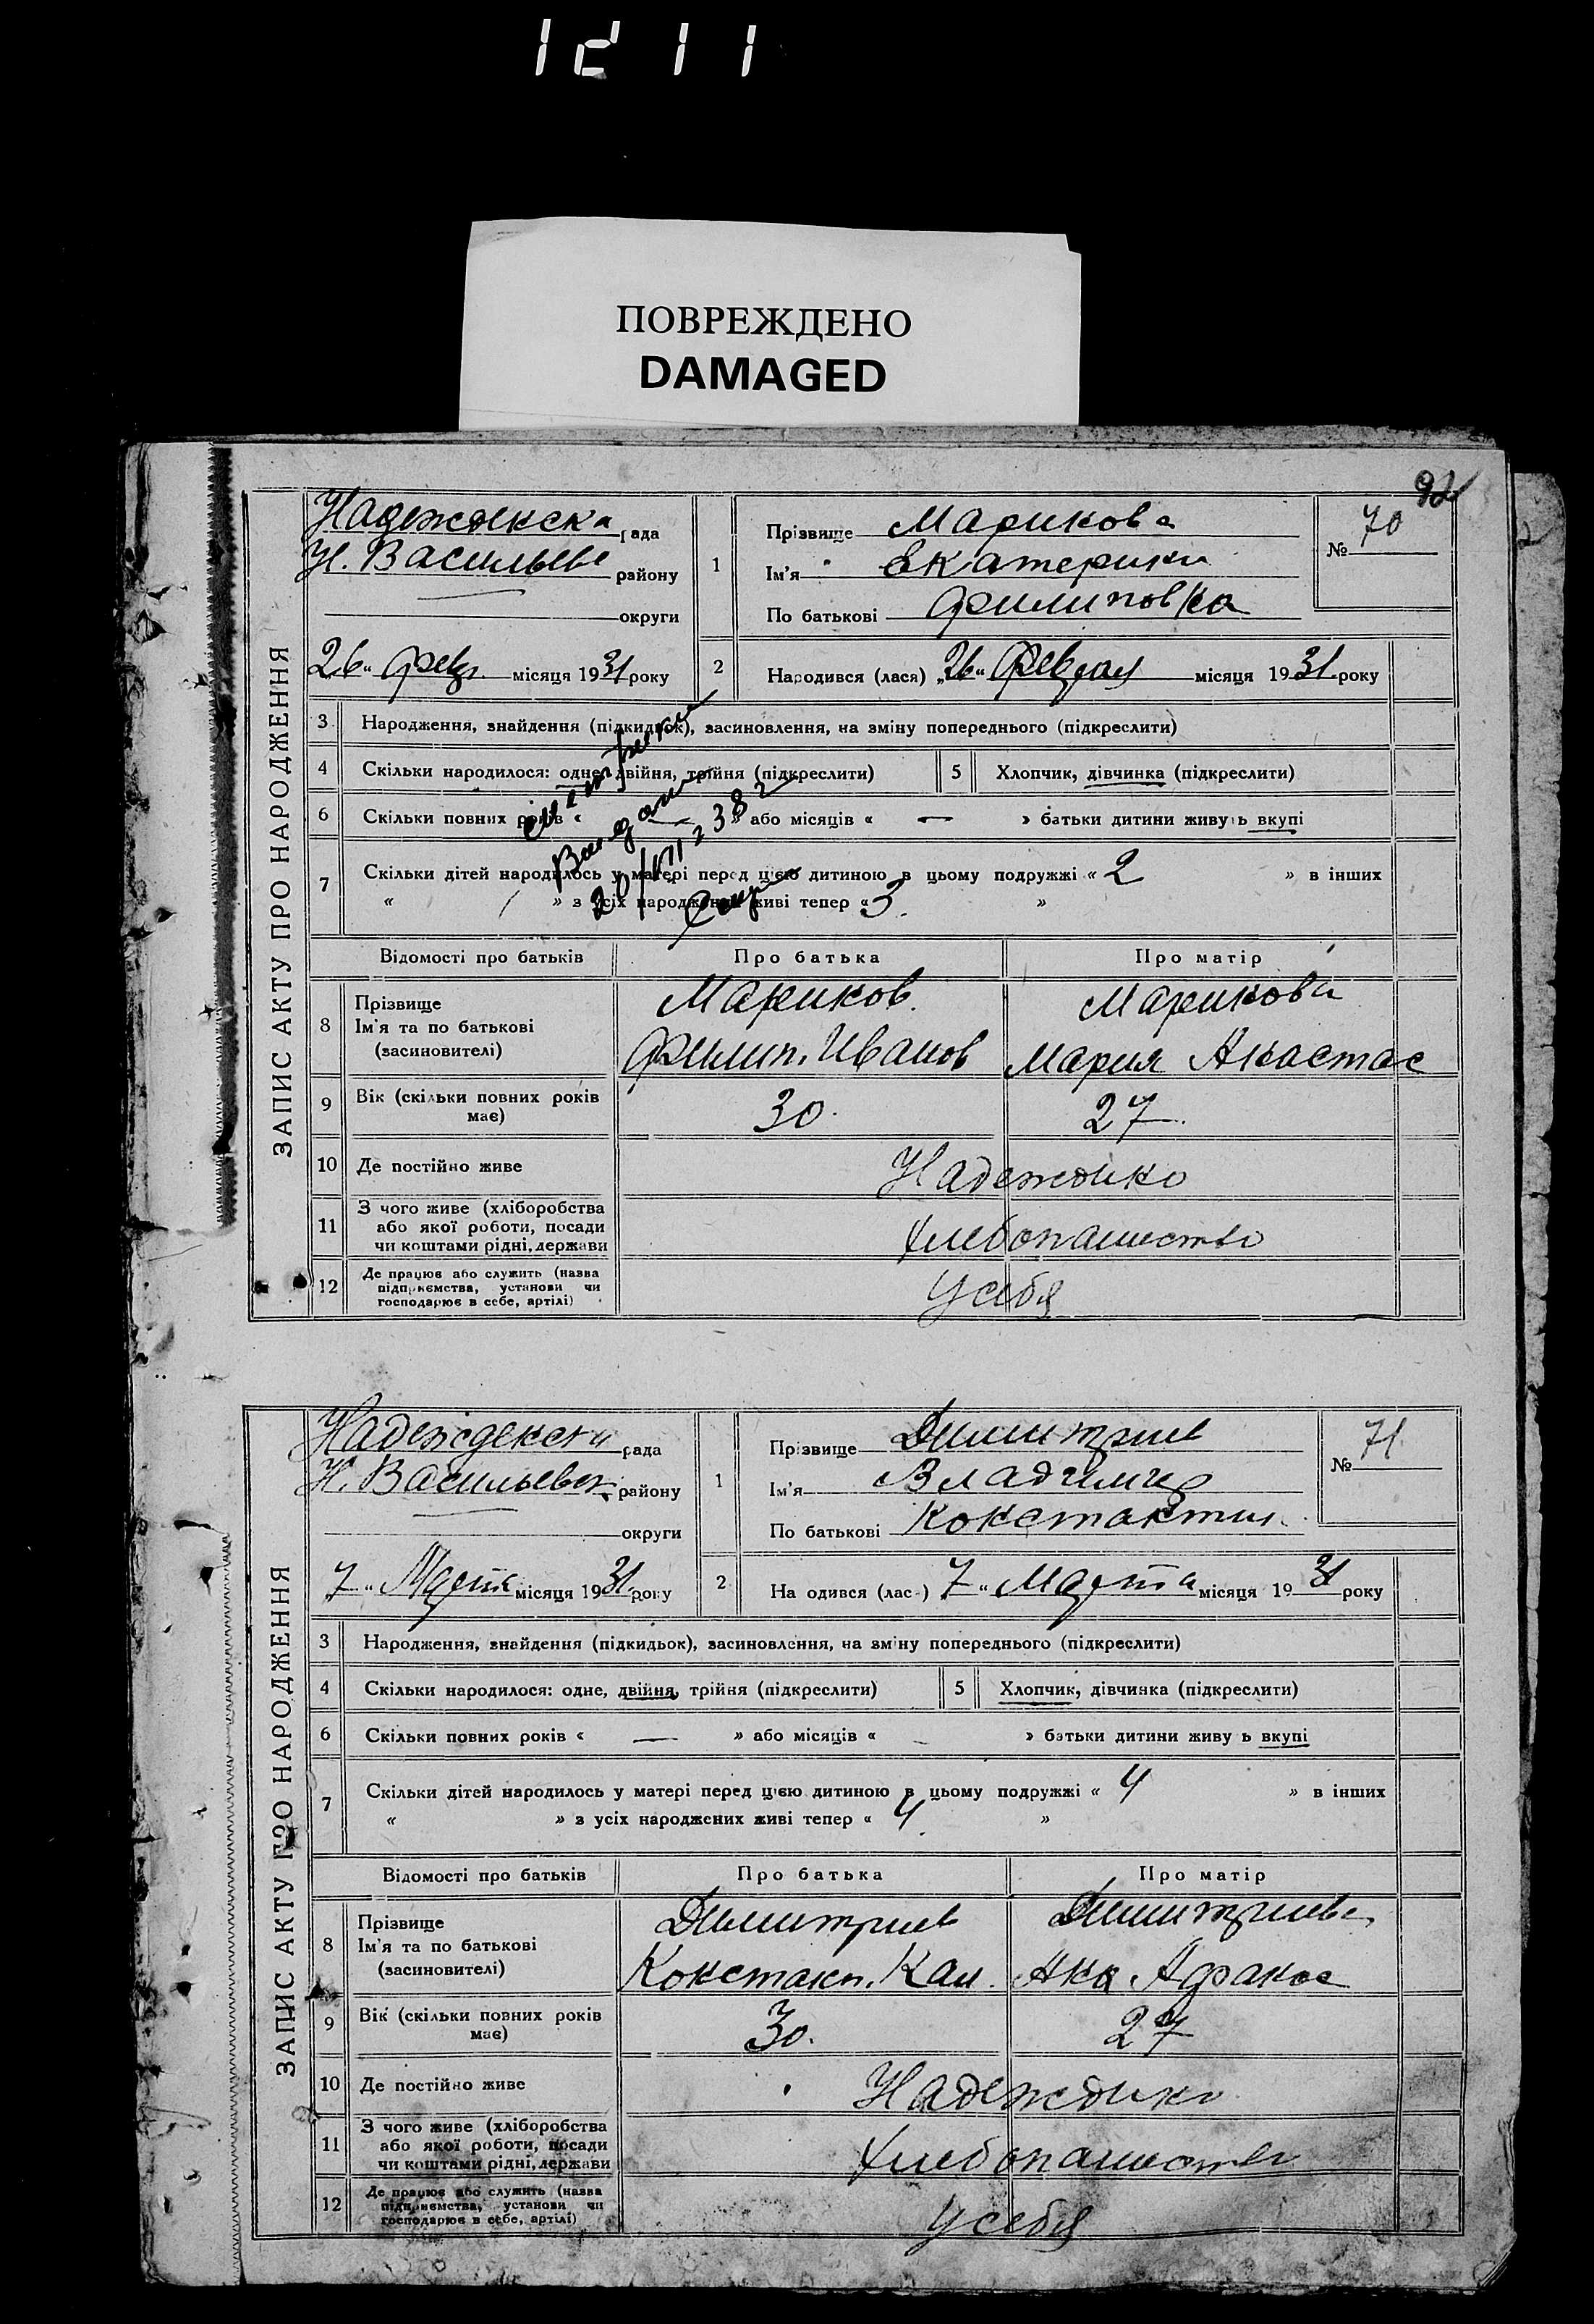 1211
ПОВРЕЖДЕНО
DAMAGED
ЗАПИС АКТУ ПРО НАРОДЖЕННЯ
Надеждинска рада
Н. Васильев району
округи
26 „ февр. місяця 1931 року
1 Прізвище Марикова
Ім'я Екатерина
По батькові Филиповна
№ 70
2 Народився (лася) „26„ Февраля місяця 1931 року
3 Народження, знайдення (підкидьок), засиновлення, на зміну попереднього (підкреслити)
4 Скільки народилося: одне, двійня, трійня (підкреслити)
5 Хлопчик, дівчинка (підкреслити)
6 Скільки повних років « — » або місяців « — » батьки дитини живуть вкупі
7 Скільки дітей народилось у матері перед цією дитиною в цьому подружжі « 2 » в інших
« / » з усіх народжених живі тепер « 3. »
20/VII 38 г
Відомості про батьків Про батька Про матір
8 Прізвище Мариков. Марикова
Ім'я та по батькові
(засиновителі) Филип. Иванов Мария Анастас
9 Вік (скільки повних років має) 30. 27.
10 Де постійно живе Надеждино
11 З чого живе (хліборобства
або якої роботи, посади
чи коштами рідні, держави Хлебопашество
12 Де працює або служить (назва
підприємства, установи чи
господарює в себе, артілі) У себя
ЗАПИС АКТУ ПРО НАРОДЖЕННЯ
Надеждекски рада
Н. Васильевск. району
округи
7 „ Марта місяця 1931 року
1 Прізвище Димитриев
Ім'я Владимир
По батькові Константин.
№ 71
2 Народився (лась) 7 „ Марта місяця 1931 року
3 Народження, знайдення (підкидьок), засиновлення, на зміну попереднього (підкреслити)
4 Скільки народилося: одне, двійня, трійня (підкреслити)
5 Хлопчик, дівчинка (підкреслити)
6 Скільки повних років « — » або місяців « — » батьки дитини живуть вкупі
7 Скільки дітей народилось у матері перед цією дитиною в цьому подружжі « 4 » в інших
« » з усіх народжених живі тепер « 4 »
Відомості про батьків Про батька Про матір
8 Прізвище Димитриев Димитриева
Ім'я та по батькові
(засиновителі) Констант. Кан. Анна Афанас
9 Вік (скільки повних років має) 30. 27
10 Де постійно живе Надеждино
11 З чого живе (хліборобства
або якої роботи, посади
чи коштами рідні, держави Хлебопашество
12 Де працює або служить (назва
підприємства, установи чи
господарює в себе, артілі) У себя